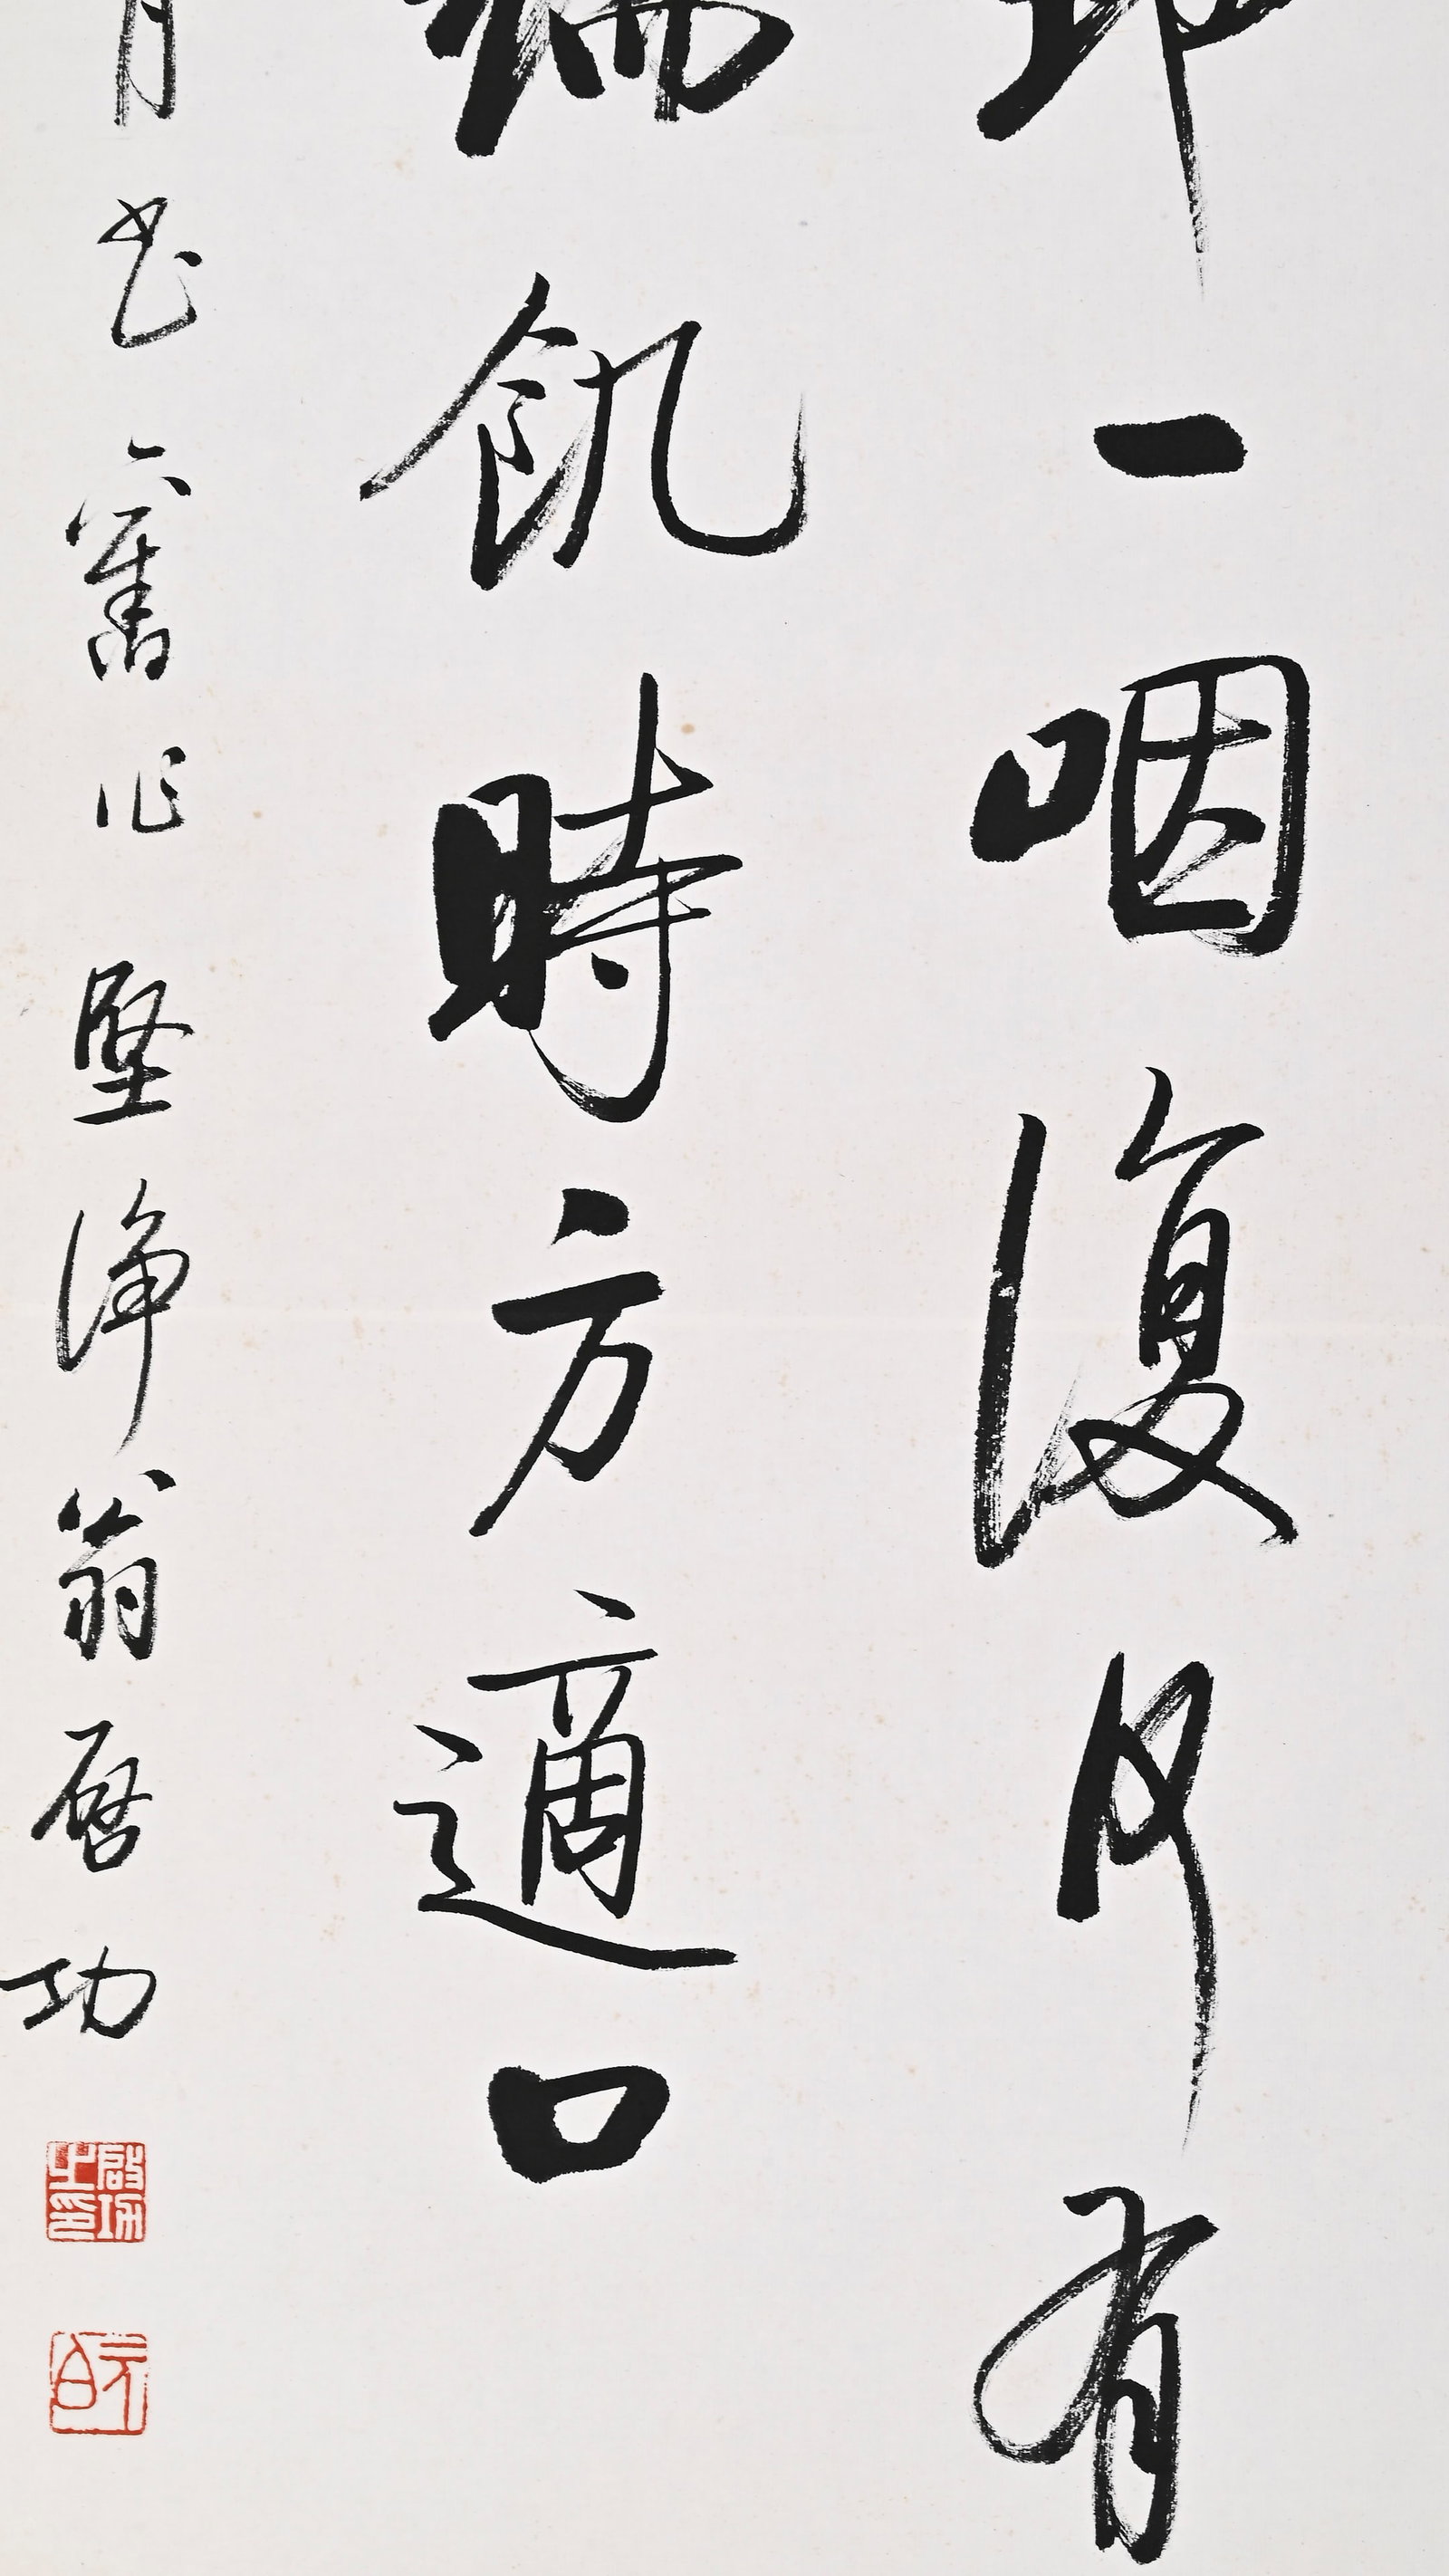 一咽復何有
飢時方適口
月書舊作堅淨翁啟功
啟功之印
元白